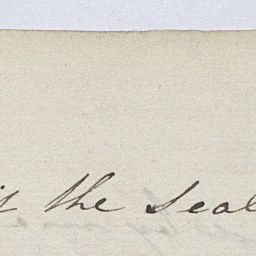 the seal